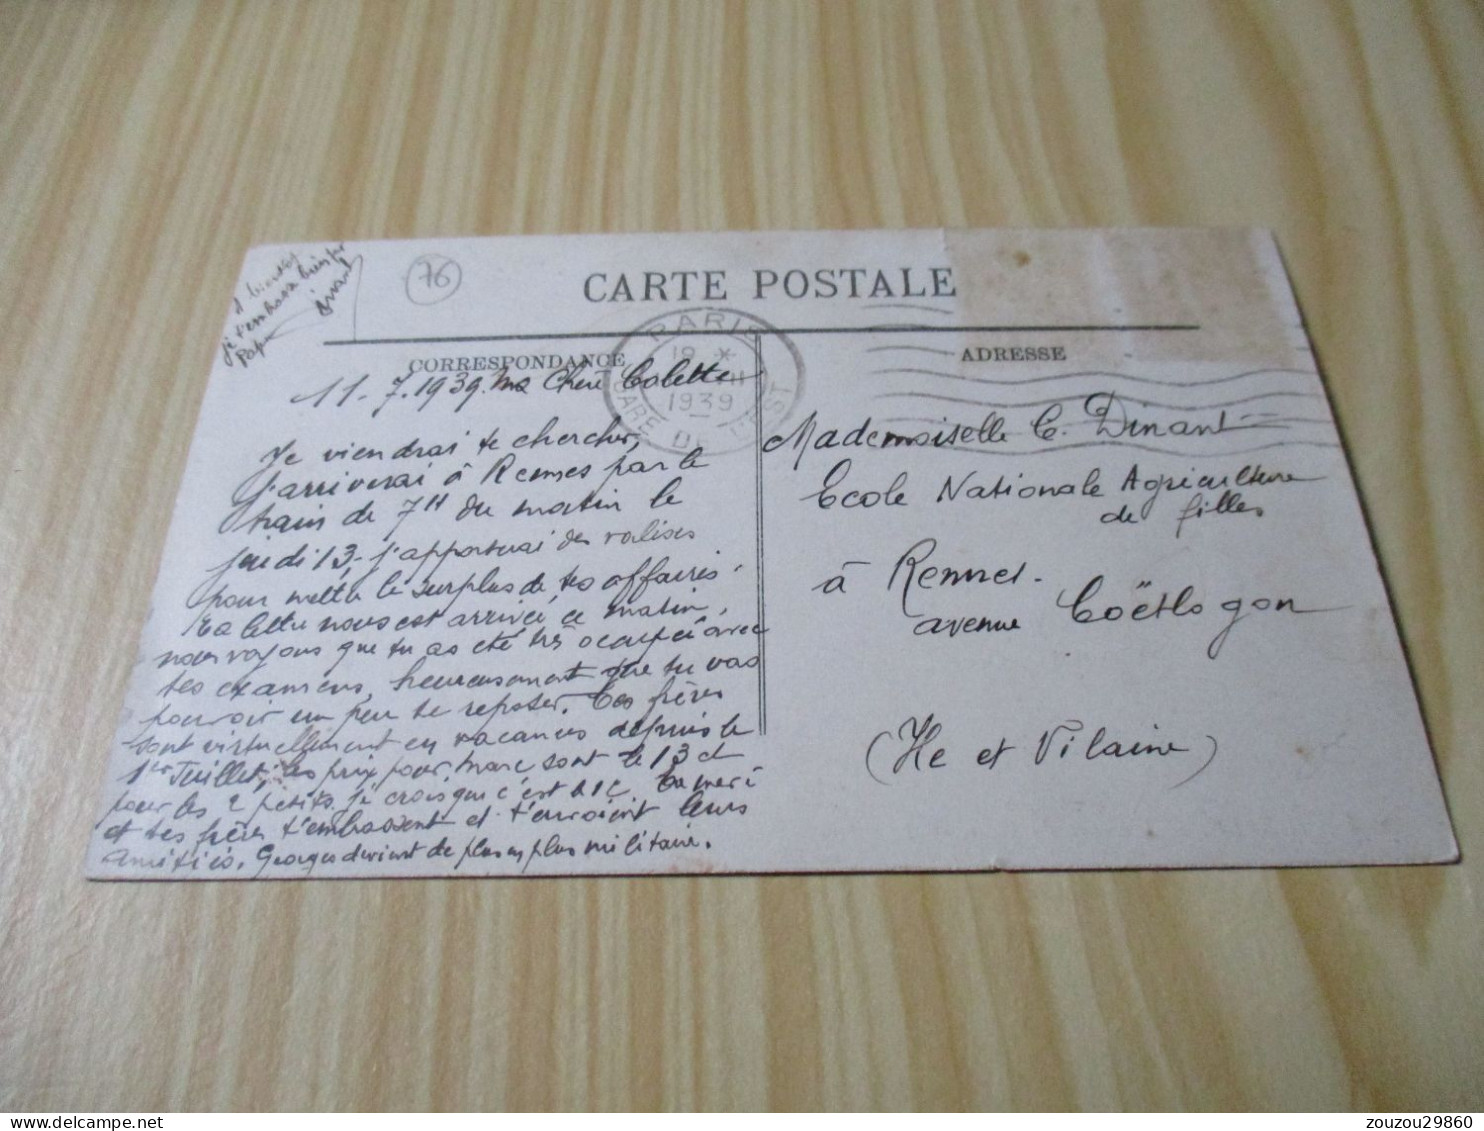 CARTE POSTALE
76
à bientôt
je t'embrasse bien fort
Papa
Dinant
CORRESPONDANCE
ADRESSE
PARIS
GARE DE L'EST
18 *
1939
11.7.1939. Ma Chère Colette
Je viendrai te chercher,
j'arriverai à Rennes par le
train de 7H du matin le
jeudi 13, j'apporterai des valises
pour mettre le surplus de tes affaires.
Ta lettre nous est arrivée ce matin,
nous voyons que tu as été très occupée avec
tes examens, heureusement que tu vas
pouvoir un peu te reposer. Tes frères
sont virtuellement en vacances depuis le
1er Juillet, les prix pour Marc sont le 13 et
pour les 2 petits je crois que c'est le 12. Ta mère
et tes frères t'embrassent et t'envoient leurs
amitiés. Georges devient de plus en plus militaire.
Mademoiselle C. Dinant
Ecole Nationale Agriculture
de filles
à Rennes.
avenue Coëtlogon
(Ille et Vilaine)
zouzou29860